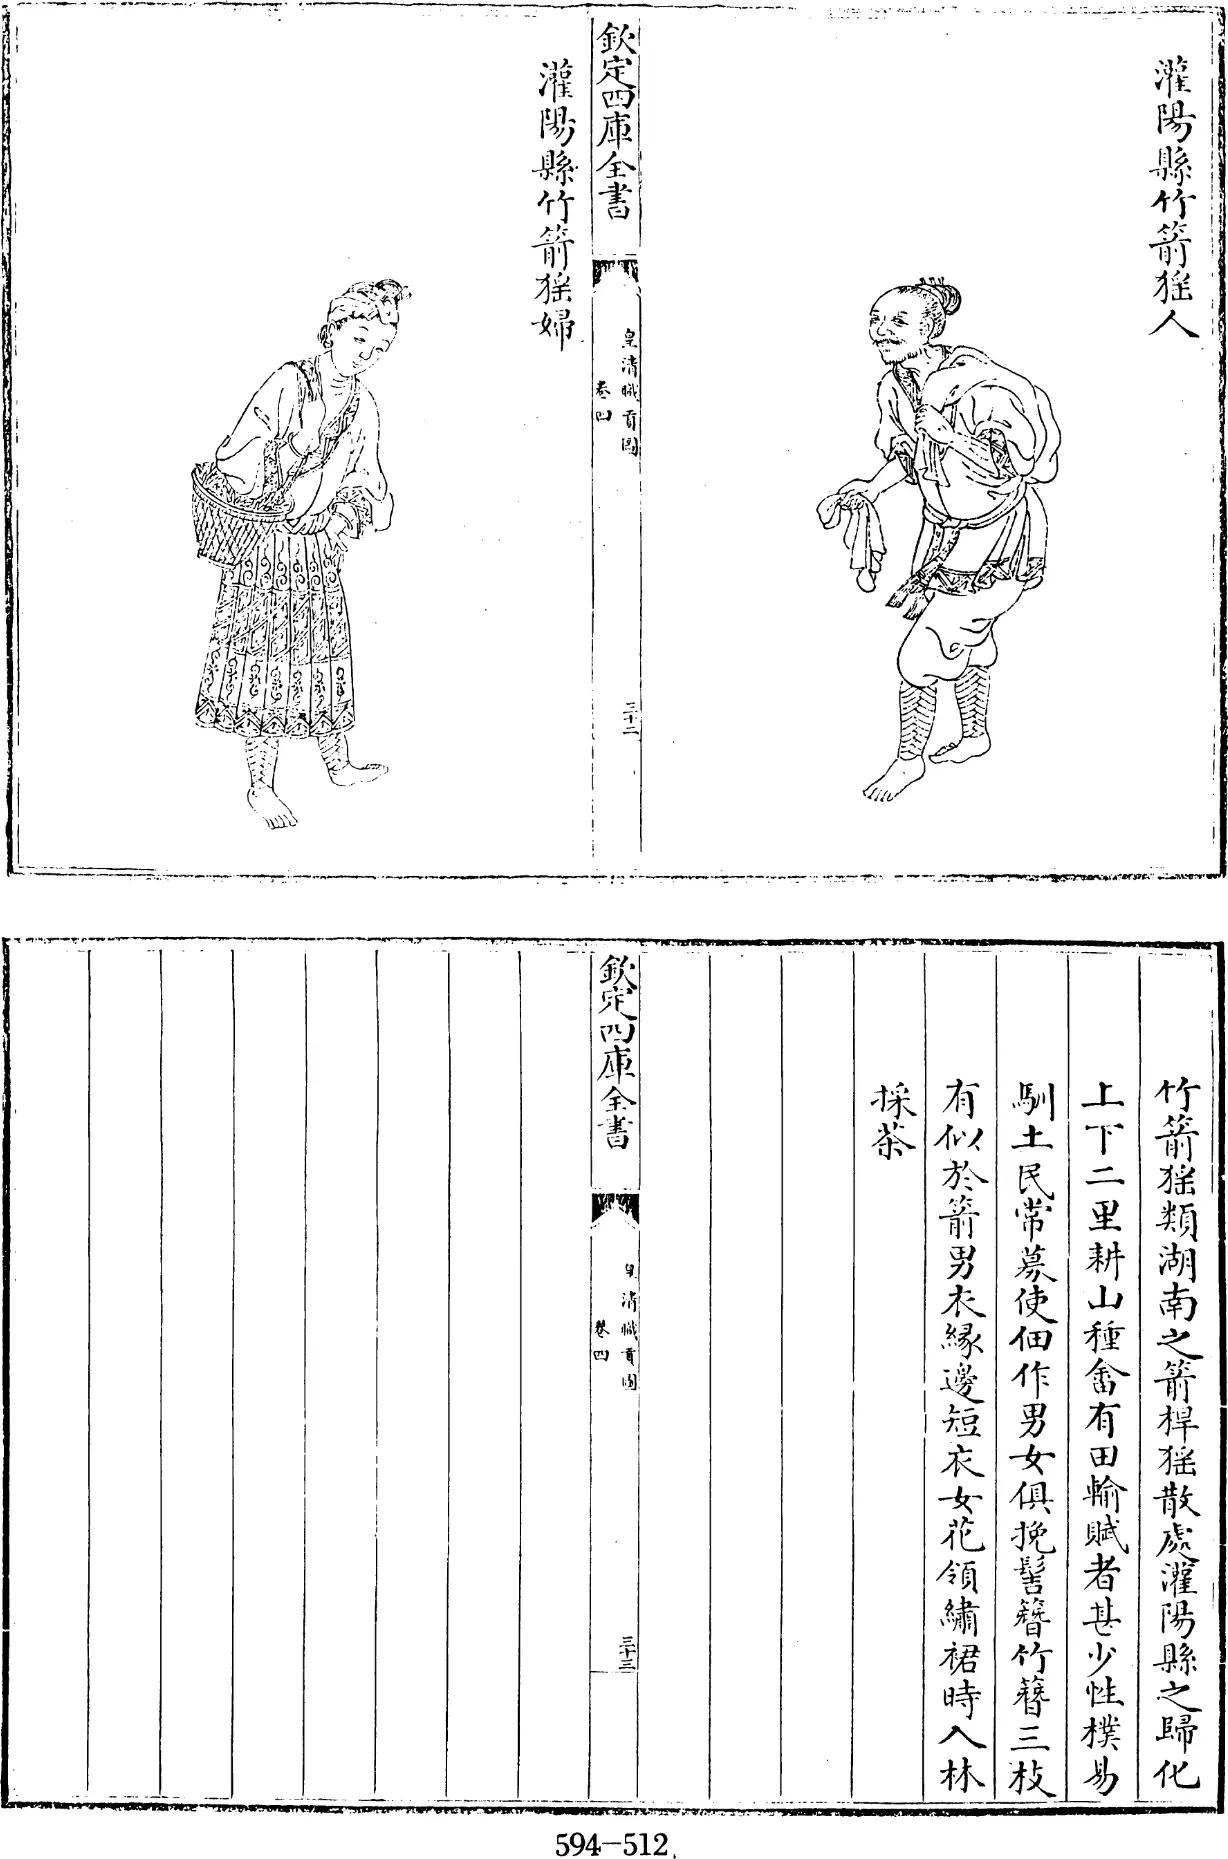 灌陽縣竹箭猺人
欽定四庫全書
皇清職貢圖
卷四
三十二
灌陽縣竹箭猺婦
竹箭猺類湖南之箭桿猺散處灌陽縣之歸化
上下二里耕山種畬有田輸賦者甚少性樸易
馴土民常募使佃作男女俱挽髻簪竹簪三枝
有似於箭男衣緣邊短衣女花領繡裙時入林
採茶
欽定四庫全書
皇清職貢圖
卷四
三十三
594-512